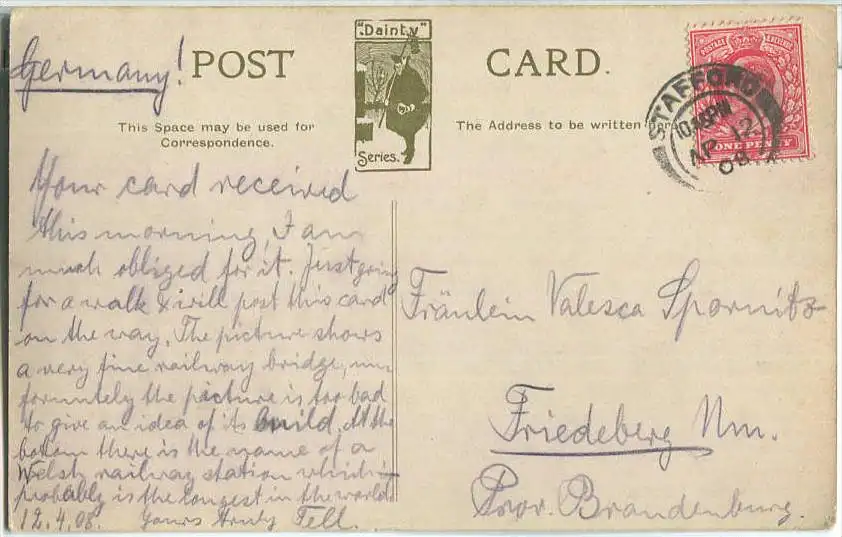 Germany!
POST CARD.
"Dainty"
Series.
This Space may be used for
Correspondence.
The Address to be written here
STAFFORD
10.45PM
AP 12
08
POSTAGE REVENUE
ONE PENNY
Your card received
this morning, I am
much obliged for it. Just going
for a walk & will post this card
on the way. The picture shows
a very fine railway bridge, un-
forunately the picture is too bad
to give an idea of its build. At the
bottom there is the name of a
Welsh railway station which
probably is the longest in the world
12.4.08. Yours truly Tell.
Fräulein Valesca Spornitz
Friedeberg Nm.
Prov. Brandenburg.